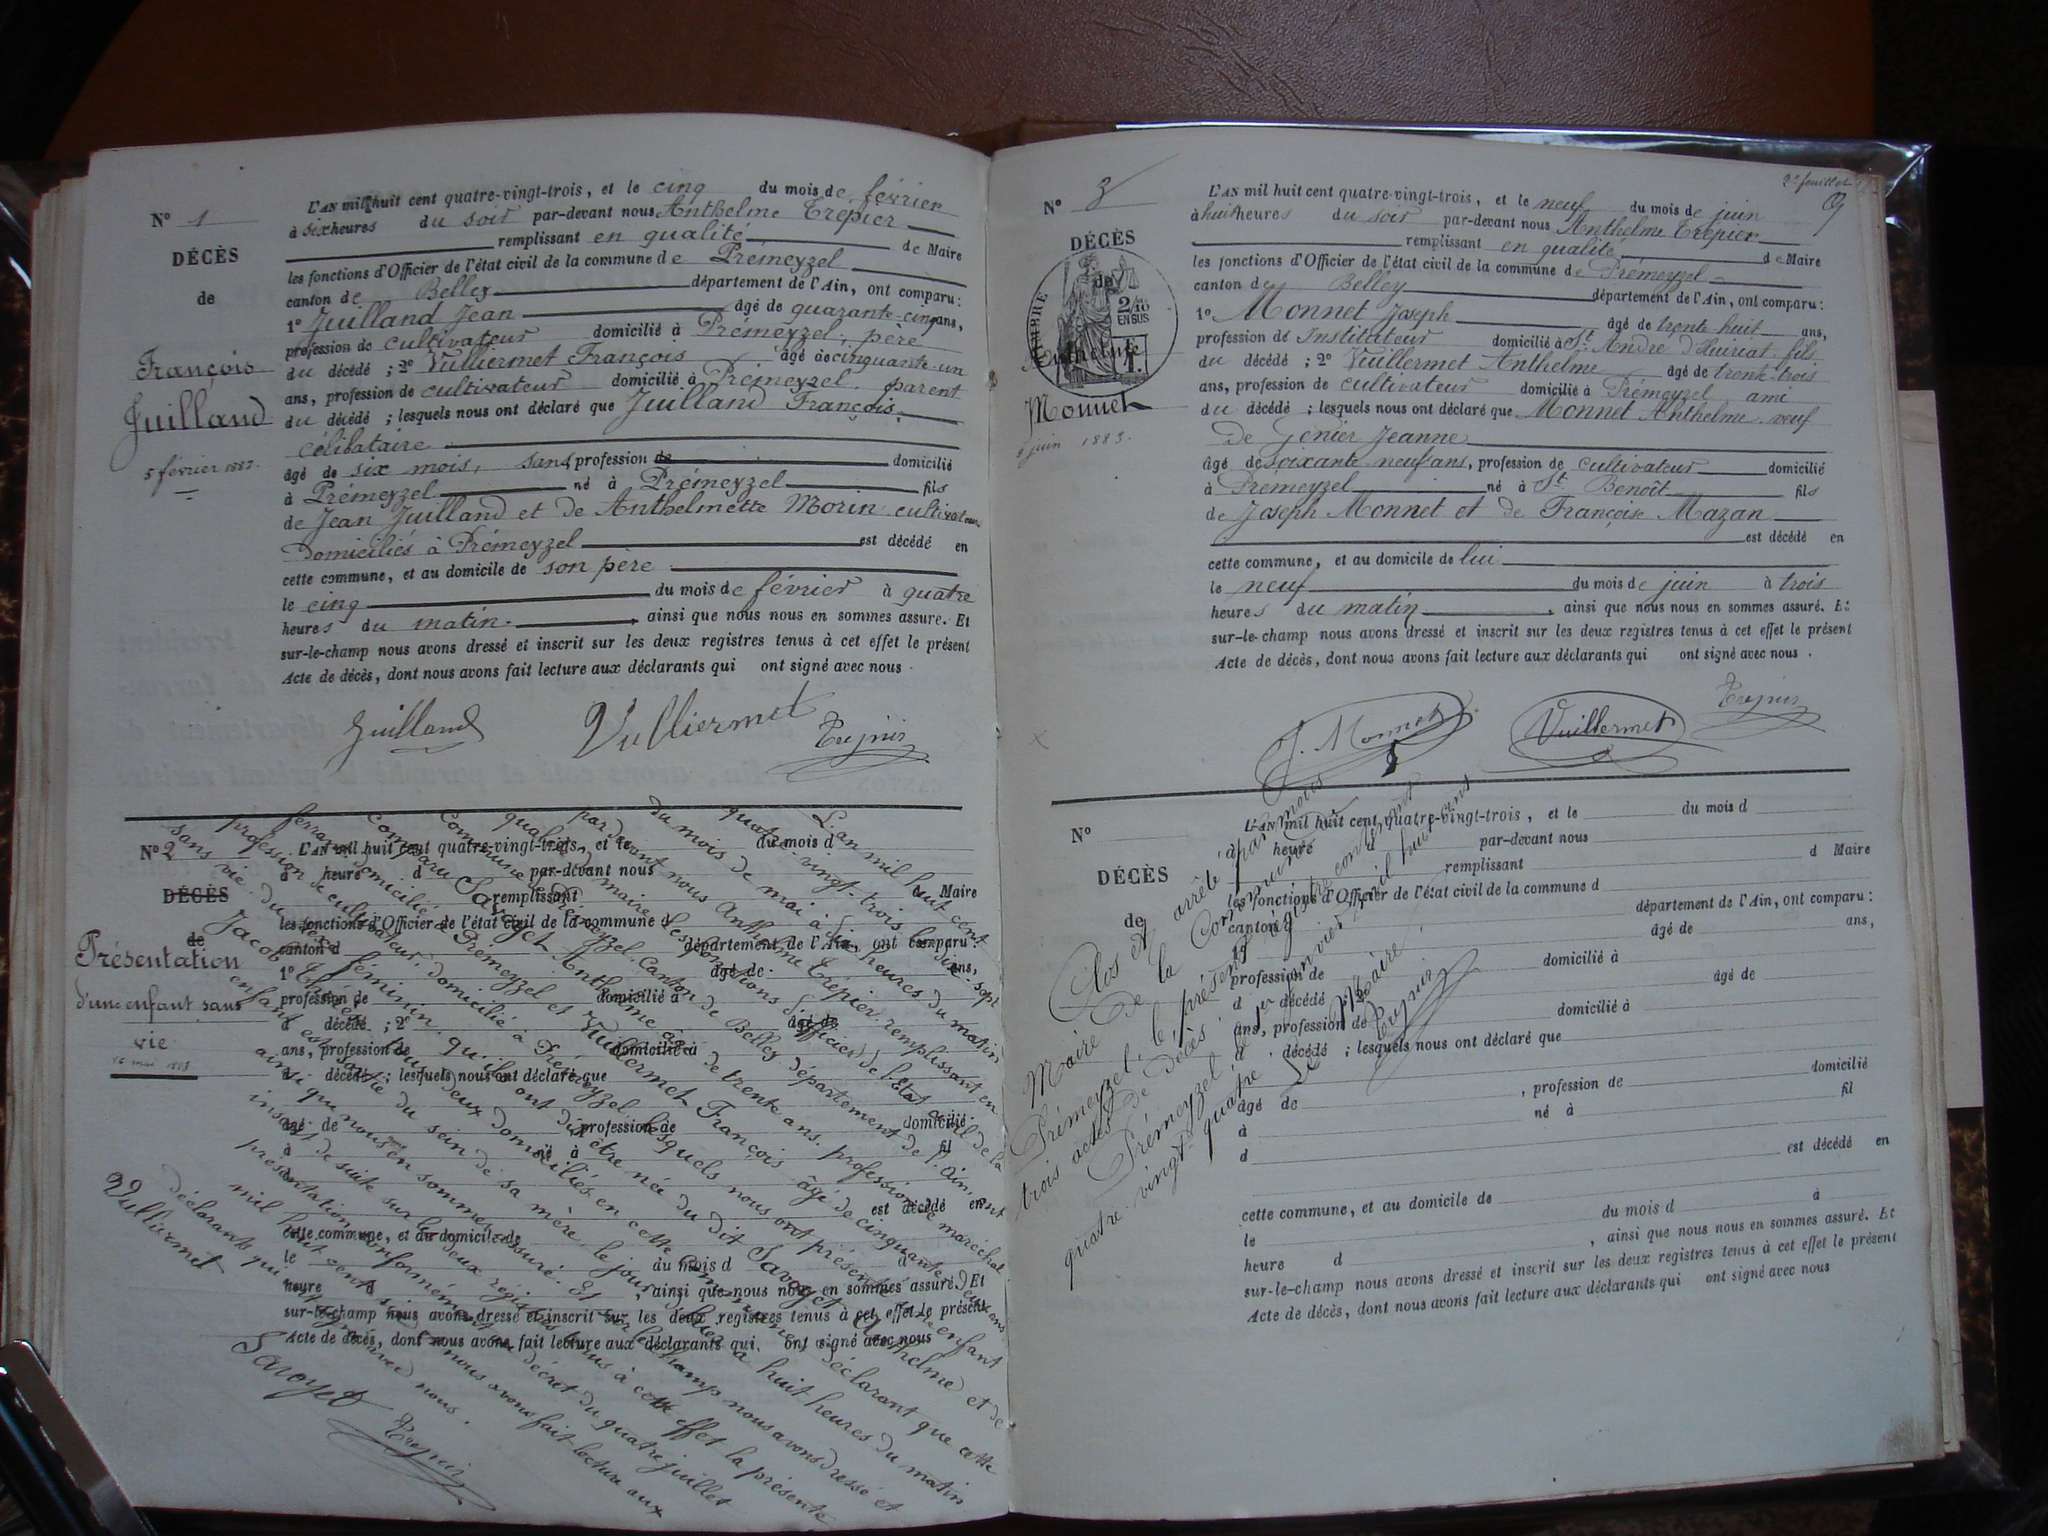 N° 1
DÉCÈS
de
François
Juilland
5 février 1883.
L'AN mil huit cent quatre-vingt-trois, et le cinq du mois de février
à six heures du soir par-devant nous Anthelme Trépier
remplissant en qualité de Maire
les fonctions d'Officier de l'état civil de la commune de Prémeyzel
canton de Belley département de l'Ain, ont comparu :
1° Juilland Jean âgé de quarante-cinq ans,
profession de cultivateur domicilié à Prémeyzel, père
du décédé ; 2° Vulliermet François âgé de cinquante-un
ans, profession de cultivateur domicilié à Prémeyzel. parent
du décédé ; lesquels nous ont déclaré que Juilland François.
célibataire
âgé de six mois, sans profession de domicilié
à Prémeyzel né à Prémeyzel fils
de Jean Juilland et de Anthelmette Morin cultivateurs
domiciliés à Prémeyzel est décédé en
cette commune, et au domicile de son père
le cinq du mois de février à quatre
heures du matin. , ainsi que nous nous en sommes assuré. Et
sur-le-champ nous avons dressé et inscrit sur les deux registres tenus à cet effet le présent
Acte de décès, dont nous avons fait lecture aux déclarants qui ont signé avec nous.
Juilland Vulliermet Trépier
N° 2
DÉCÈS
de
Présentation
d'un enfant sans
vie
L'AN mil huit cent quatre-vingt-trois, et le du mois d
à heure d par-devant nous
remplissant d Maire
les fonctions d'Officier de l'état civil de la commune d
canton d département de l'Ain, ont comparu :
1° âgé de ans,
profession de domicilié à
d décédé ; 2° âgé de
ans, profession de domicilié à
d décédé ; lesquels nous ont déclaré que
âgé de profession de domicilié
à né à fil
d est décédé en
cette commune, et au domicile de
le du mois d à
heure d , ainsi que nous nous en sommes assuré. Et
sur-le-champ nous avons dressé et inscrit sur les deux registres tenus à cet effet le présent
Acte de décès, dont nous avons fait lecture aux déclarants qui ont signé avec nous
L'an mil huit cent
quatre-vingt-trois le dix-sept
du mois de mai à heures du matin
par devant nous Anthelme Trépier remplissant en
qualité de maire les fonctions d'officier de l'état civil de la
commune de Prémeyzel, canton de Belley département de l'Ain, ont
comparu Savoyet Anthelme âgé de trente ans. profession de maréchal
ferrant domicilié à Prémeyzel et Vulliermet François âgé de cinquante deux ans
profession de cultivateur, domicilié à Prémeyzel lesquels nous ont présenté un enfant
sans vie du sexe féminin qu'ils ont dit être née du dit Savoyet Anthelme et de
Jacob tous deux domiciliés en cette commune déclarant que cette
enfant est sortie du sein de sa mère le jour à huit heures du matin.
ainsi que nous nous en sommes assuré. Et sur le champ nous avons dressé et
inscrit de suite sur les deux régistres tenus à cet effet la présente
présentation conformément au décret du quatre juillet
mil huit cent six nous avons fait lecture aux
déclarants qui ont signé avec nous.
Vulliermet
Savoyet
Trépier
2e feuillet
N° 3
DÉCÈS
de
TIMBRE
2/10
EN SUS
Anthelme
Monnet
9 juin 1883.
L'AN mil huit cent quatre-vingt-trois, et le neuf du mois de juin
à huit heures du soir par-devant nous Anthelme Trépier
remplissant en qualité de Maire
les fonctions d'Officier de l'état civil de la commune de Prémeyzel
canton de Belley département de l'Ain, ont comparu :
1° Monnet Joseph âgé de trente huit ans,
profession de Instituteur domicilié à St André d'Huiriat fils
du décédé ; 2° Vuillermet Anthelme âgé de trente-trois
ans, profession de cultivateur domicilié à Prémeyzel ami
du décédé ; lesquels nous ont déclaré que Monnet Anthelme veuf
de Génier Jeanne
âgé de soixante-neuf ans, profession de cultivateur domicilié
à Prémeyzel né à St Benoît fils
de Joseph Monnet et de Françoise Mazan
est décédé en
cette commune, et au domicile de lui
le neuf du mois de juin à trois
heures du matin , ainsi que nous nous en sommes assuré. Et
sur-le-champ nous avons dressé et inscrit sur les deux registres tenus à cet effet le présent
Acte de décès, dont nous avons fait lecture aux déclarants qui ont signé avec nous.
J. Monnet Vuillermet Trépier
N°
DÉCÈS
de
L'AN mil huit cent quatre-vingt-trois, et le du mois d
à heure par-devant nous
remplissant d Maire
les fonctions d'Officier de l'état civil de la commune d
canton d département de l'Ain, ont comparu :
1° âgé de ans,
profession de domicilié à
d décédé ; 2° âgé de
ans, profession de domicilié à
d décédé ; lesquels nous ont déclaré que
âgé de , profession de domicilié
à né à fil
d est décédé en
cette commune, et au domicile de
le du mois d à
heure d , ainsi que nous nous en sommes assuré. Et
sur-le-champ nous avons dressé et inscrit sur les deux registres tenus à cet effet le présent
Acte de décès, dont nous avons fait lecture aux déclarants qui ont signé avec nous
Clos et arrêté par nous
Maire de la Commune de
Prémeyzel le présent régistre contenant
trois actes de décès.
Prémeyzel le 1er janvier mil huit cent
quatre-vingt-quatre
Le Maire
Trépier